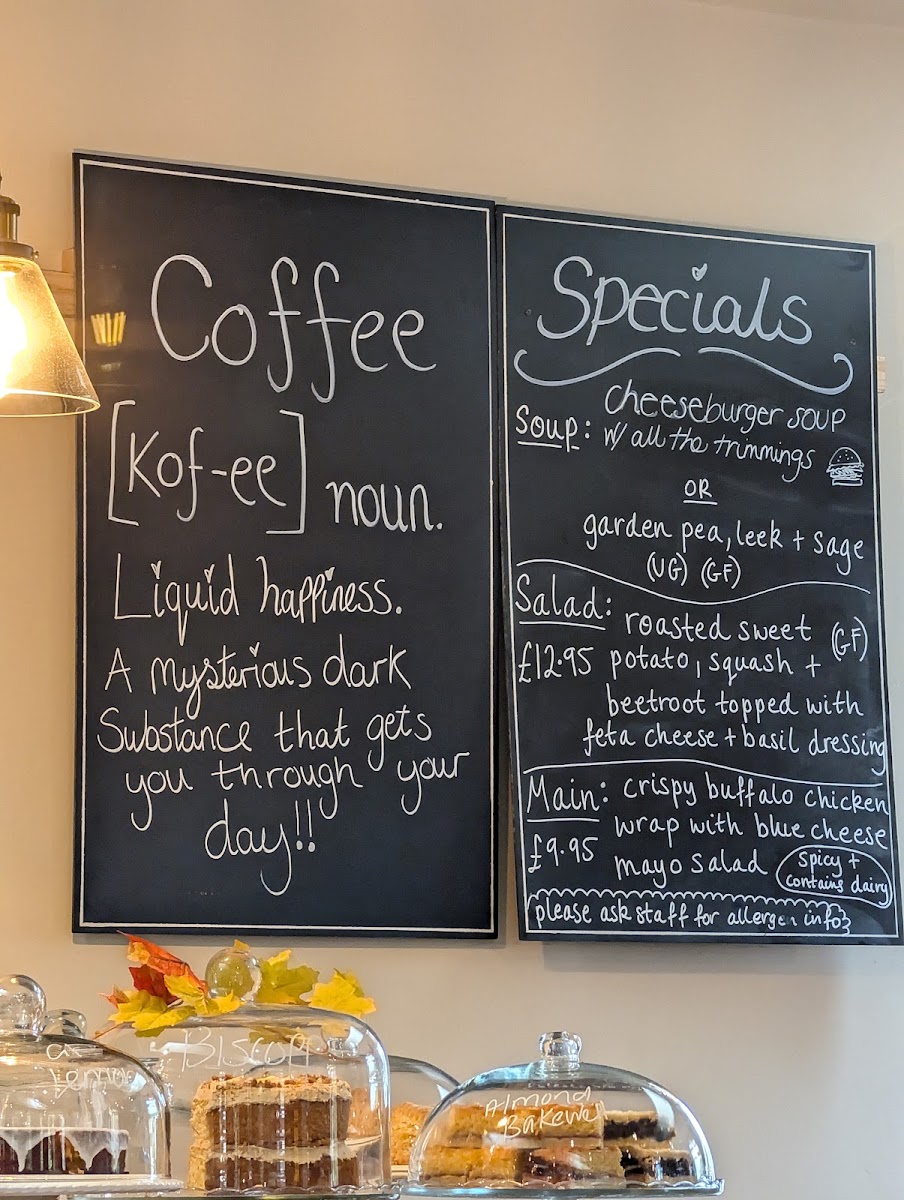 Coffee
[Kof-ee] noun.
Liquid happiness.
A mysterious dark
Substance that gets
you through your
day!!
Specials
Soup: cheeseburger soup
w/ all the trimmings
OR
garden pea, leek + sage
(VG) (GF)
Salad: roasted sweet (GF)
£12.95 potato, squash +
beetroot topped with
feta cheese + basil dressing
Main: crispy buffalo chicken
wrap with blue cheese
£9.95 mayo salad
Spicy +
contains dairy
please ask staff for allergen info
Lemon
BISCOFF
Almond
BAKEWELL